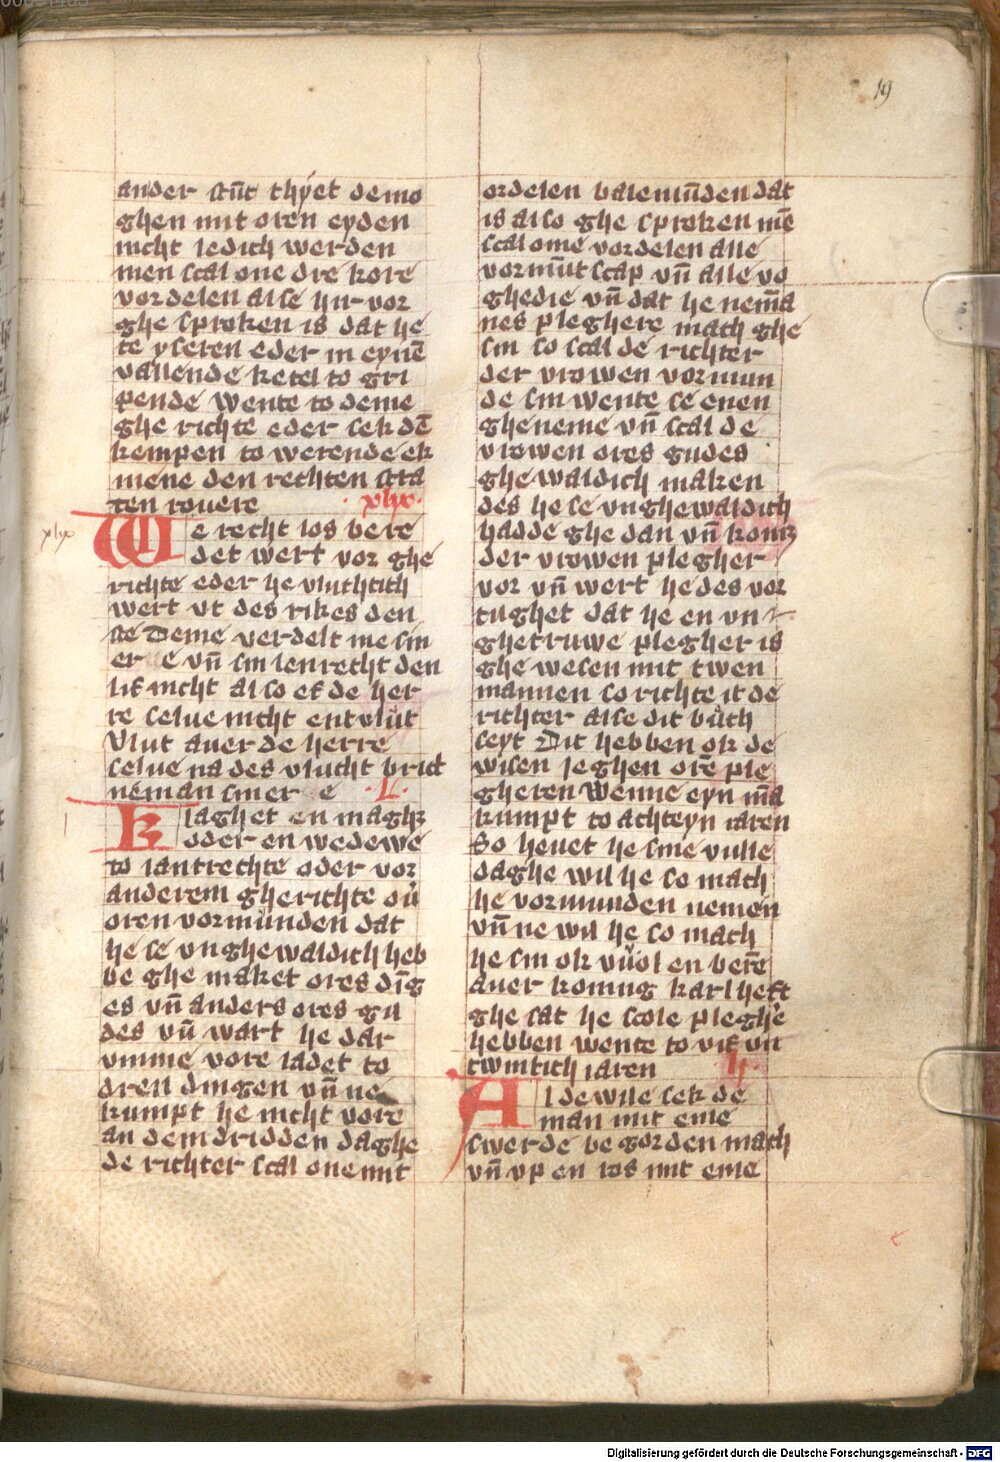 19
ander stūt thyet de mo
ghen mit oren eyden
nicht ledich werden
men scal one dre kore
vordelen alse hir vor
ghe sproken is dat he
te yseren eder in eynē
vallende ketel to gri
pende wente to deme
ghe richte eder sek dē
kempen to werende ek
mene den rechten stra
ten rouere · xlix ·
xlix
We recht los bere
det wert vor ghe
richte eder he vluchtich
wert vt des rikes den
ste Deme verdelt me sin
er e vn̄ sin lenrecht den
lif nicht also ef de her
re selue nicht entvlut
Vlut auer de herre
selue na des vlucht brict
neman siner e · L ·
l
Klaghet en maghet
oder en wedewe
to lantrechte oder vor
anderem gherichte ou
oren vormunden dat
he se vnghewaldich heb
be ghe maket ores dīg
es vn̄ anders ores gu
des vn̄ wart he dar
vmme vore ladet to
dren dingen vn̄ ne
kumpt he nicht vore
an dem dridden daghe
de richter scal one mit
ordelen balemūden dat
is also ghe sproken mē
scal ome vordelen alle
vormūt scap vn̄ alle vo
ghedie vn̄ dat he nem̄a
nes pleghere mach ghe
sin so scal de richter
der vrowen vormun
de sin wente se enen
gheneme vn̄ scal de
vrowen ores gudes
ghewaldich maken
des he se vnghewaldich
hadde ghe dan vn̄ komz
der vrowen plegher
vor vn̄ wert he des vor
tughet dat he en vn
ghetruwe plegher is
ghe wesen mit twen
mannen so richte it de
richter alse dit buch
seyt Dit hebben ok de
wisen jeghen orē ple
gheren Wenne eyn mā
kumpt to achteyn iaren
So heuet he sine vulle
daghe wil he so mach
he vormunden nemen
vn̄ ne wil he so mach
he sin ok vůol en berē
Auer koning karl heft
ghe sat he scole pleghe
hebben wente to vif vn̄
twintich iaren · lj ·
Al de wile sek de
man mit eme
swerde be gorden mach
vn̄ vp en ros mit eme
Digitalisierung gefördert durch die Deutsche Forschungsgemeinschaft - DFG